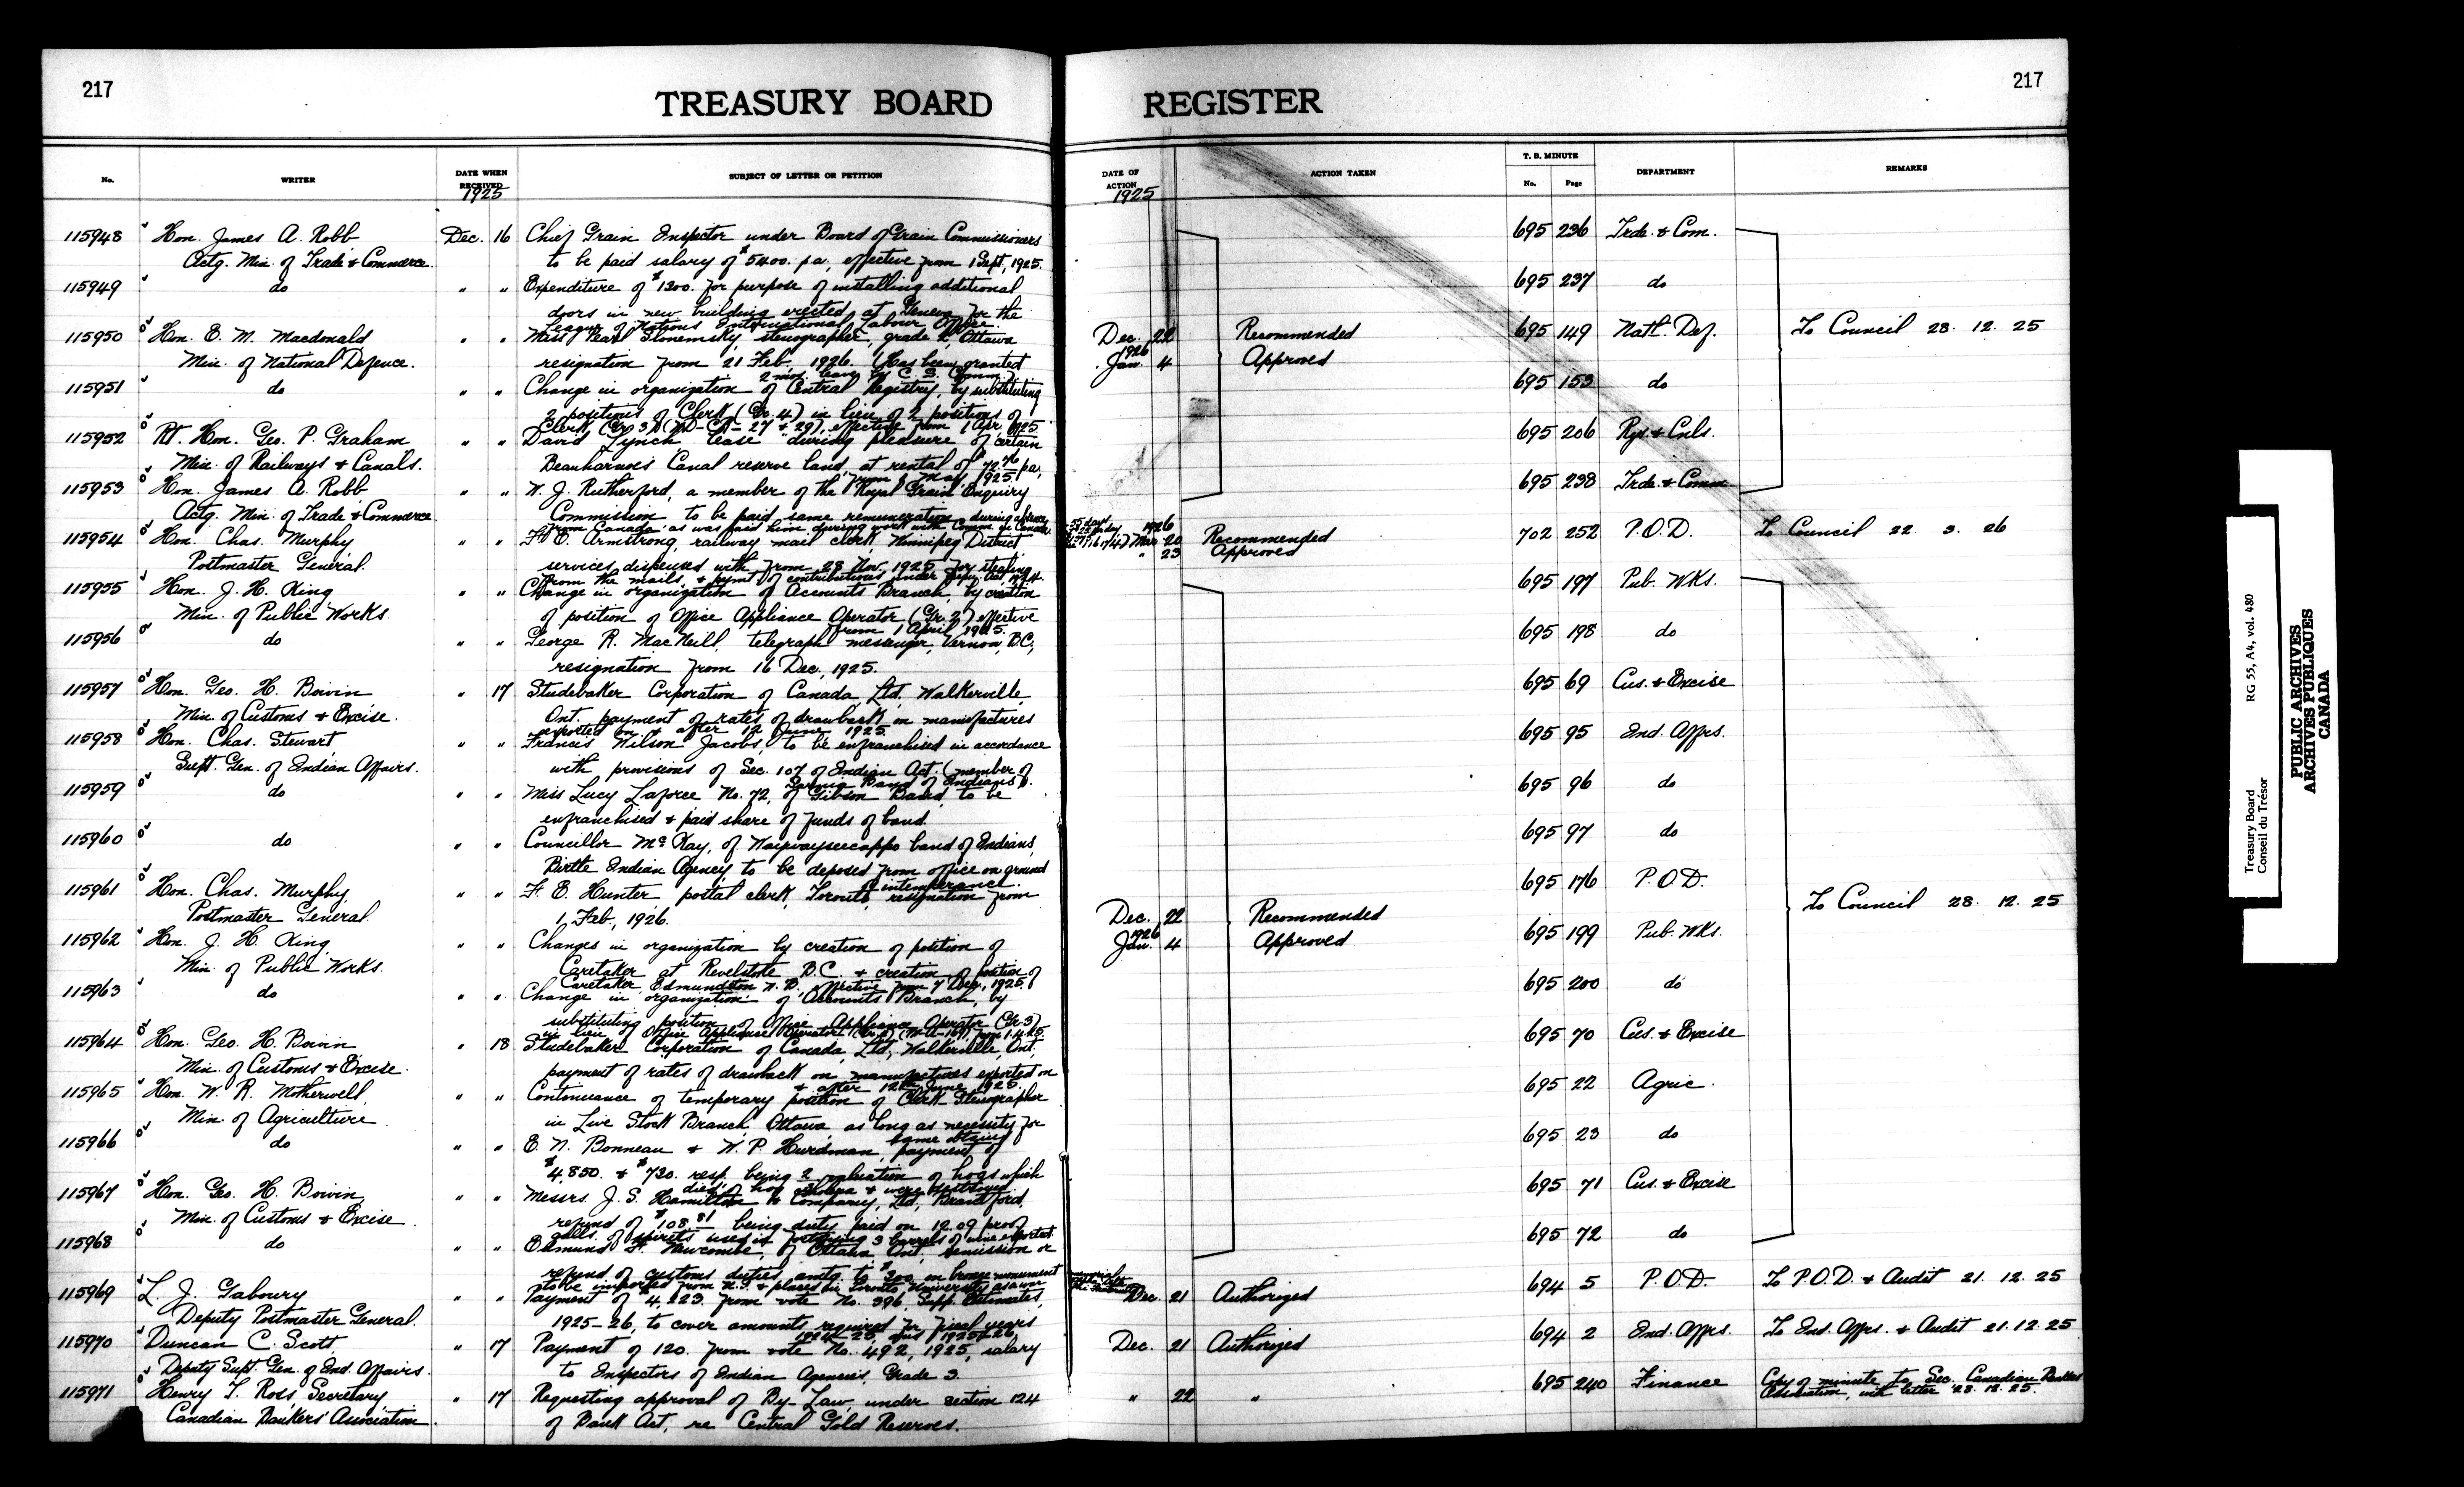 217
TREASURY BOARD
No.
WRITER
DATE WHEN RECEIVED
1925
SUBJECT OF LETTER OR PETITION
115948 Hon. James A. Robb Dec. 16 Chief Grain Inspector under Board of Grain Commissioners
Actg. Min. of Trade & Commerce. to be paid salary of $5400. p.a., effective from 1 Sept., 1925.
115949 do " " Expenditure of $1300. for purpose of installing additional
doors in new building erected at Geneva for the
League of Nations International Labour Office.
115950 Hon. E. M. Macdonald " " Miss Pearl Slonemsky, stenographer, grade 2, Ottawa
Min. of National Defence. resignation from 21 Feb., 1926. (Has been granted
2 mos. leave by C. S. Comm.)
115951 do " " Change in organization of Central Registry, by substituting
2 positions of Clerk (Gr. 4) in lieu of 2 positions of
Clerk (Gr. 3) (ND-CA-27 & 29), effective from 1 Apr. 1925.
115952 Rt. Hon. Geo. P. Graham " " David Lynch lease "during pleasure" of certain
Min. of Railways & Canals. Beauharnois Canal reserve land, at rental of $72.76 p.a.,
from 1 May, 1925.
115953 Hon. James A. Robb " " W. J. Rutherford, a member of the Royal Grain Enquiry
Actg. Min. of Trade & Commerce. Commission to be paid same remuneration during absence
from Canada as was paid him during work with Comm. in Canada.
115954 Hon. Chas. Murphy " " F. E. Armstrong, railway mail clerk, Winnipeg District
Postmaster General. services dispensed with from 28 Nov. 1925 for stealing
from the mails, & pymt. of contributions under
115955 Hon. J. H. King " " Change in organization of Accounts Branch, by creation
Min. of Public Works. of position of Office Appliance Operator (Gr. 2) effective
from 1 April, 1925.
115956 do " " George R. MacNeill, telegraph messenger, Vernon, B.C.,
resignation from 16 Dec., 1925.
115957 Hon. Geo. H. Boivin " 17 Studebaker Corporation of Canada, Ltd., Walkerville,
Min. of Customs & Excise. Ont. payment of rates of drawback on manufactures
exported on & after 12 June, 1925.
115958 Hon. Chas. Stewart, " " Francis Wilson Jacobs, to be enfranchised in accordance
Supt. Gen. of Indian Affairs. with provisions of Sec. 107 of Indian Act. (member of
Sarnia Band of Indians).
115959 do " " Miss Lucy Laforce No. 72, of Gibson Band, to be
enfranchised & paid share of funds of band.
115960 do " " Councillor McKay, of Waywayseecappo band of Indians,
Birtle Indian Agency, to be deposed from office on ground
of intemperance.
115961 Hon. Chas. Murphy, " " F. E. Hunter, postal clerk, Toronto, resignation from
Postmaster General. 1, Feb., 1926.
115962 Hon. J. H. King, " " Changes in organization by creation of position of
Min. of Public Works. Caretaker at Revelstoke B.C. & creation of position of
Caretaker, Edmundston N.B., effective from 7 Dec., 1925.
115963 do " " Change in organization of Accounts Branch, by
substituting position of Office Appliance Operator (Gr. 3)
in lieu of Office Appliance Operator
115964 Hon. Geo. H. Boivin " 18 Studebaker Corporation of Canada, Ltd., Walkerville, Ont.,
Min. of Customs & Excise. payment of rates of drawback on manufactures exported on
& after 12th June, 1925.
115965 Hon. W. R. Motherwell, " " Continuance of temporary position of Clerk-Stenographer
Min. of Agriculture in Live Stock Branch, Ottawa, as long as necessity for
same obtains
115966 do " " E. N. Bonneau & W. P. Hurdman, payment of
$4,850. & $730. resp. being 2/3 valuation of hogs which
died of hog cholera & were destroyed
115967 Hon. Geo. H. Boivin, " " Messrs. J. S. Hamilton & Company, Ltd., Brantford,
Min. of Customs & Excise. refund of $108.81 being duty paid on 12.09 proof
galls. of spirits used in fortifying 3 barrels of wine exported.
115968 do " " Edmund F. Newcombe, of Ottawa Ont., remission or
refund of customs duties amtg. to $300. on bronze monument
to be imported from U.S. & placed in Toronto University as a war
115969 L. J. Gaboury " " Payment of $4,223. from vote No. 396, Supp. Estimates,
Deputy Postmaster General. 1925-26, to cover amounts required for fiscal years
1924-25, and 1925-26.
115970 Duncan C. Scott, " 17 Payment of 120. from vote No. 492, 1925, salary
Deputy Supt. Gen. of Ind. Affairs. to Inspectors of Indian Agencies, Grade 3.
115971 Henry T. Ross, Secretary " 17 Requesting approval of By-Law, under section 124
Canadian Bankers' Association. of Bank Act, re Central Gold Reserves.
217
REGISTER
DATE OF ACTION
1925
ACTION TAKEN
T. B. MINUTE
No. Page
DEPARTMENT
REMARKS
695 236 Trde. & Com.
695 237 do
Dec. 22 Recommended 695 149 Natl. Def. To Council 28. 12. 25
1926
Jan. 4 Approved
695 153 do
695 206 Rys. & Cnls.
695 238 Trde. & Comm
1926
Mar 20 Recommended 702 252 P.O.D. To Council 22. 3. 26
" 23 Approved
695 197 Pub. Wks.
695 198 do
695 69 Cus. & Excise
695 95 Ind. Affrs.
695 96 do
695 97 do
695 176 P.O.D.
Dec. 22 Recommended To Council 28. 12. 25
1926
Jan. 4 Approved 695 199 Pub. Wks.
695 200 do
695 70 Cus. & Excise
695 22 Agric.
695 23 do
695 71 Cus. & Excise
695 72 do
memorial
Dec. 21 Authorized 694 5 P.O.D. To P.O.D. & Audit 21. 12. 25
Dec. 21 Authorized 694 2 Ind. Affrs. To Ind. Affrs. & Audit 21.12.25
" 22 " 695 240 Finance Copy of minute to Sec. Canadian Bankers
Association, with letter 28. 12. 25.
Treasury Board RG 55, A4, vol. 480
Conseil du Trésor
PUBLIC ARCHIVES
ARCHIVES PUBLIQUES
CANADA